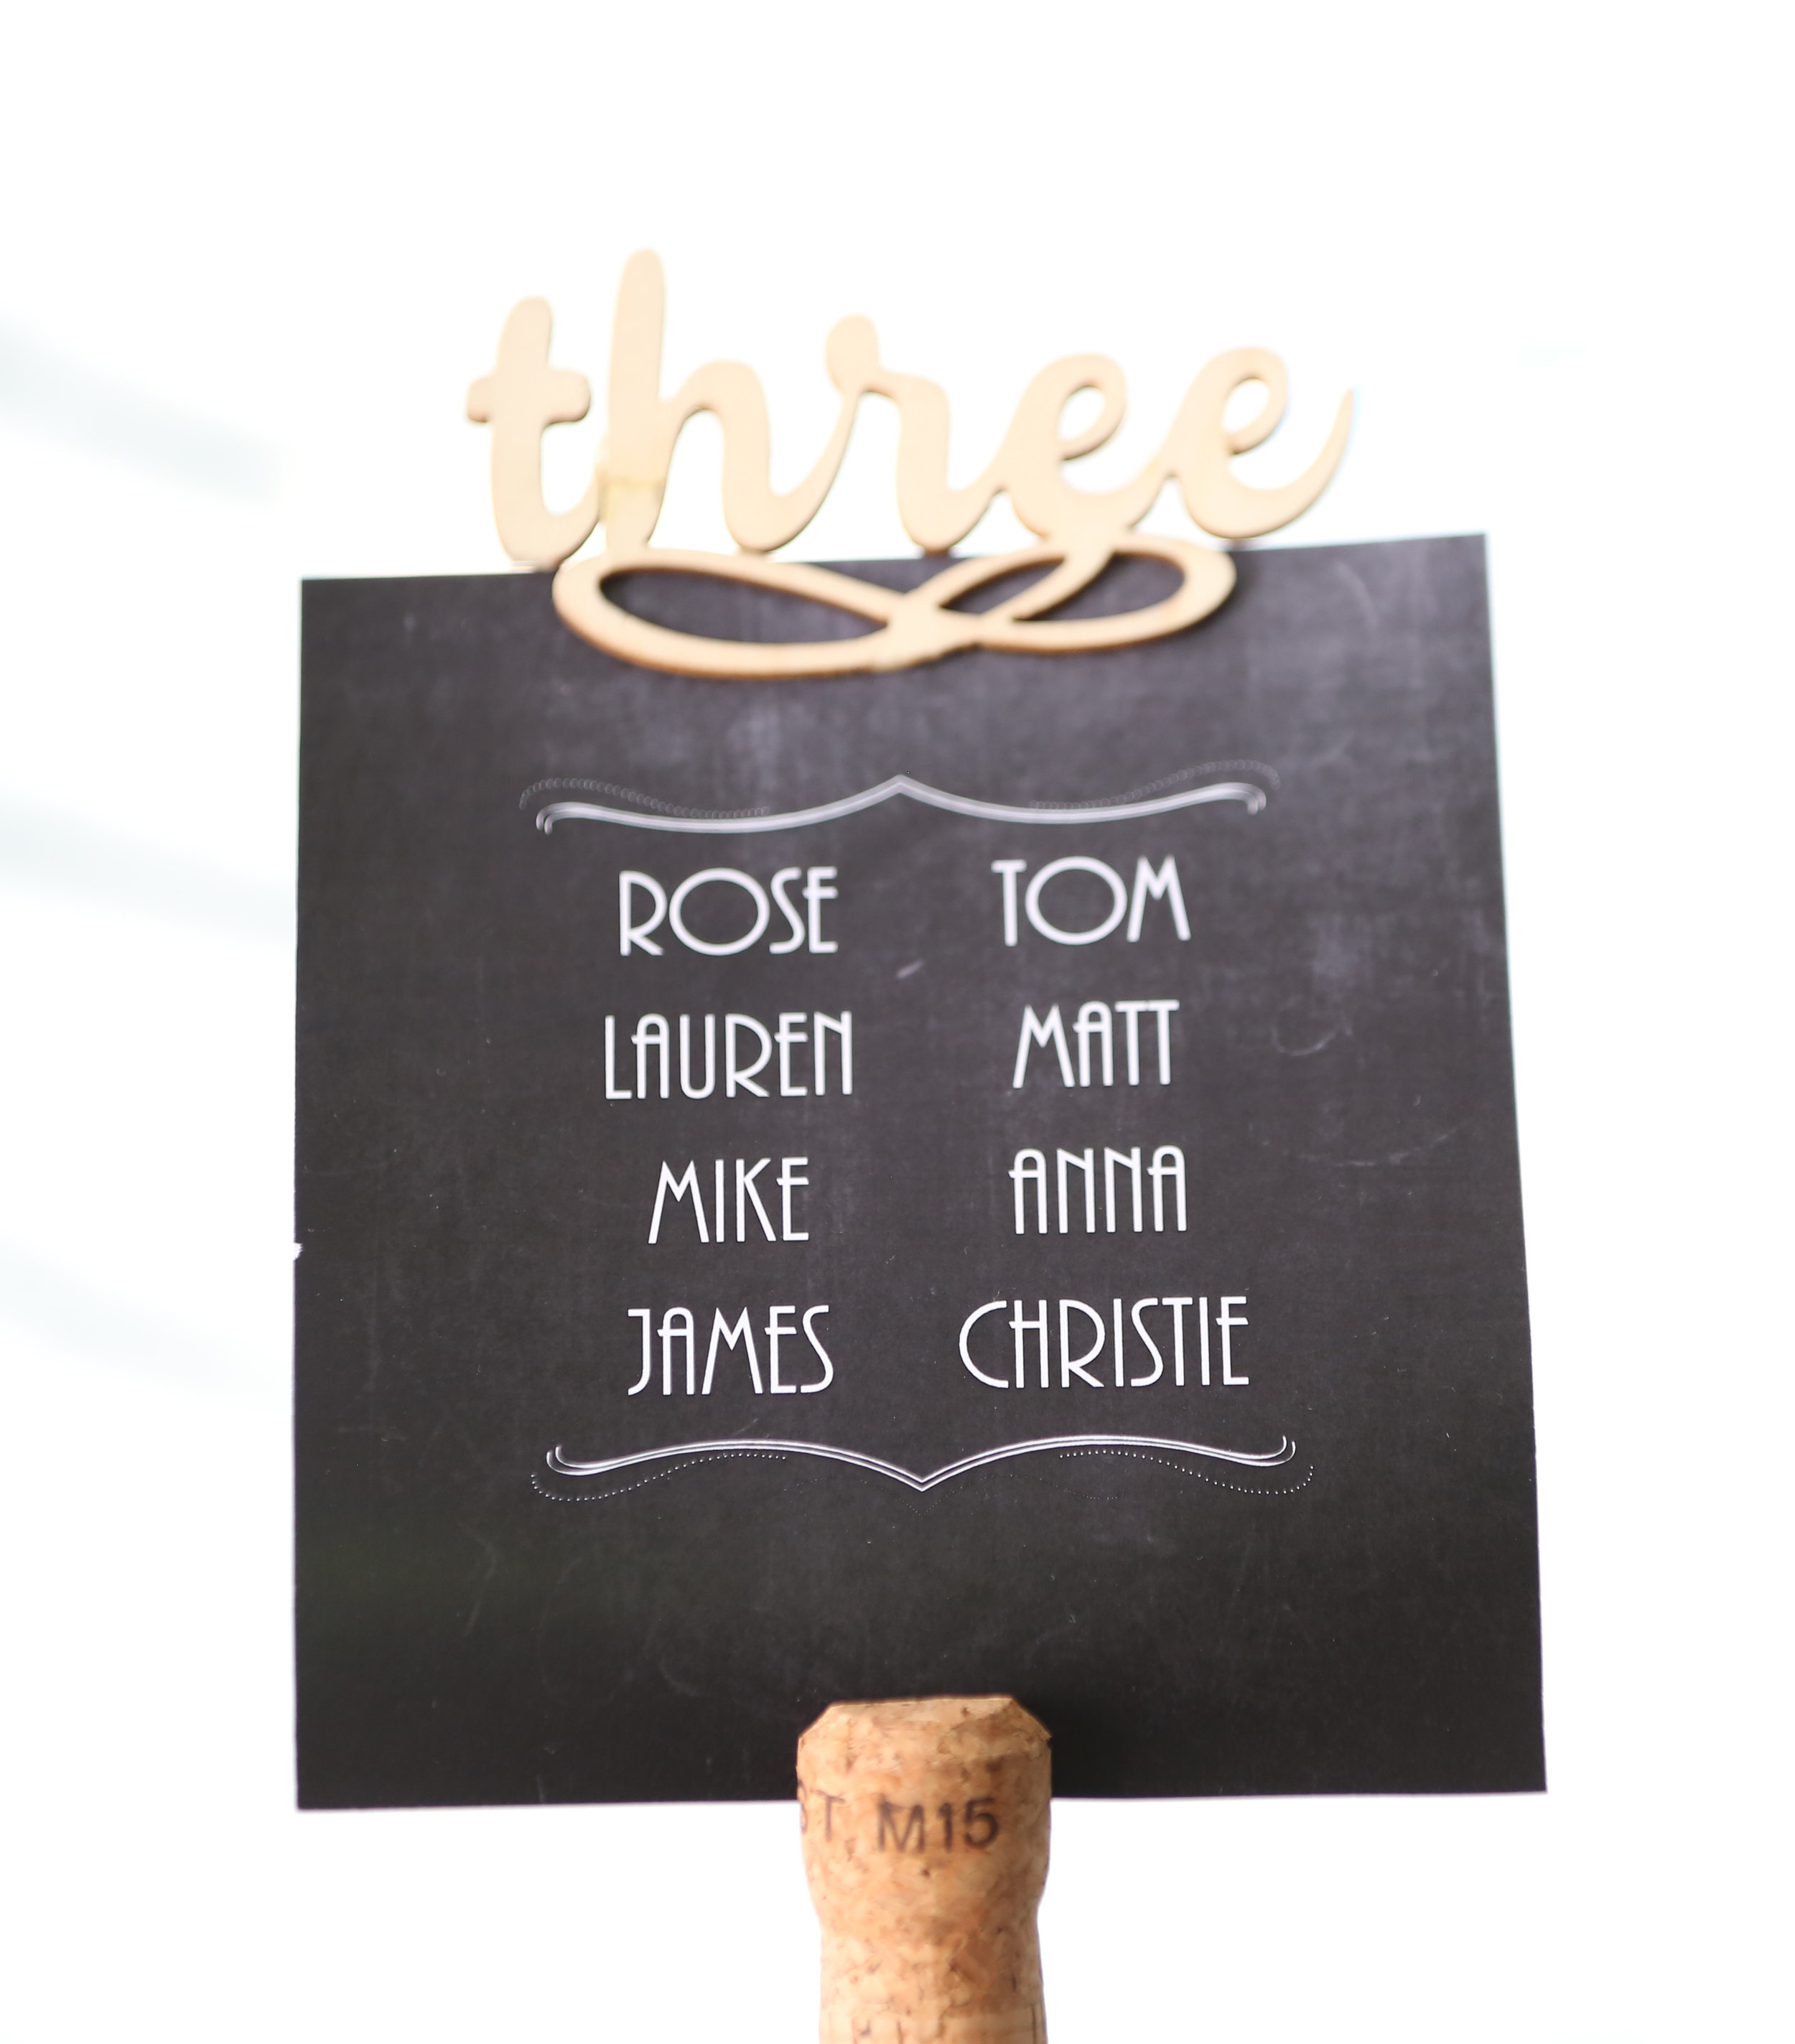 three
ROSE TOM
LAUREN MATT
MIKE ANNA
JAMES CHRISTIE
M15